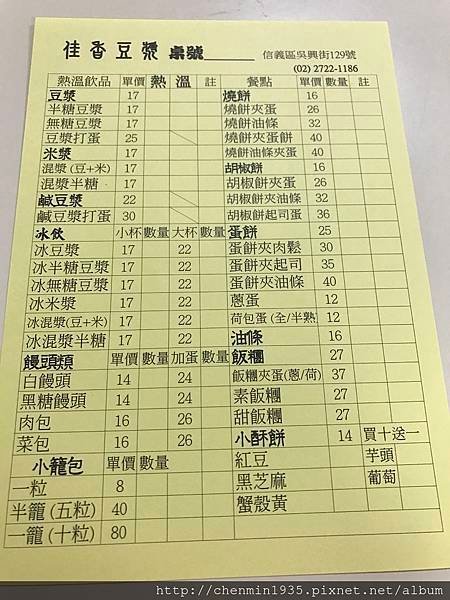 佳香豆漿 桌號______ 信義區吳興街129號
(02) 2722-1186
熱溫飲品 單價 熱 溫 註 餐點 單價 數量 註
豆漿 17 燒餅 16
半糖豆漿 17 燒餅夾蛋 26
無糖豆漿 17 燒餅油條 32
豆漿打蛋 25 燒餅夾蛋餅 40
米漿 17 燒餅油條夾蛋 40
混漿 (豆+米) 17 胡椒餅 16
混漿半糖 17 胡椒餅夾蛋 26
鹹豆漿 22 胡椒餅夾油條 32
鹹豆漿打蛋 30 胡椒餅起司蛋 36
冰飲 小杯 數量 大杯 數量 蛋餅 25
冰豆漿 17 22 蛋餅夾肉鬆 30
冰半糖豆漿 17 22 蛋餅夾起司 35
冰無糖豆漿 17 22 蛋餅夾油條 40
冰米漿 17 22 蔥蛋 12
冰混漿(豆+米) 17 22 荷包蛋 (全/半熟) 12
冰混漿半糖 17 22 油條 16
饅頭類 單價 數量 加蛋 數量 飯糰 27
白饅頭 14 24 飯糰夾蛋(蔥/荷) 37
黑糖饅頭 14 24 素飯糰 27
肉包 16 26 甜飯糰 27
菜包 16 26 小酥餅 14 買十送一
小籠包 單價 數量 紅豆 芋頭
一粒 8 黑芝麻 葡萄
半籠 (五粒) 40 蟹殼黃
一籠 (十粒) 80
http://chenmin1935.pixnet.net/album